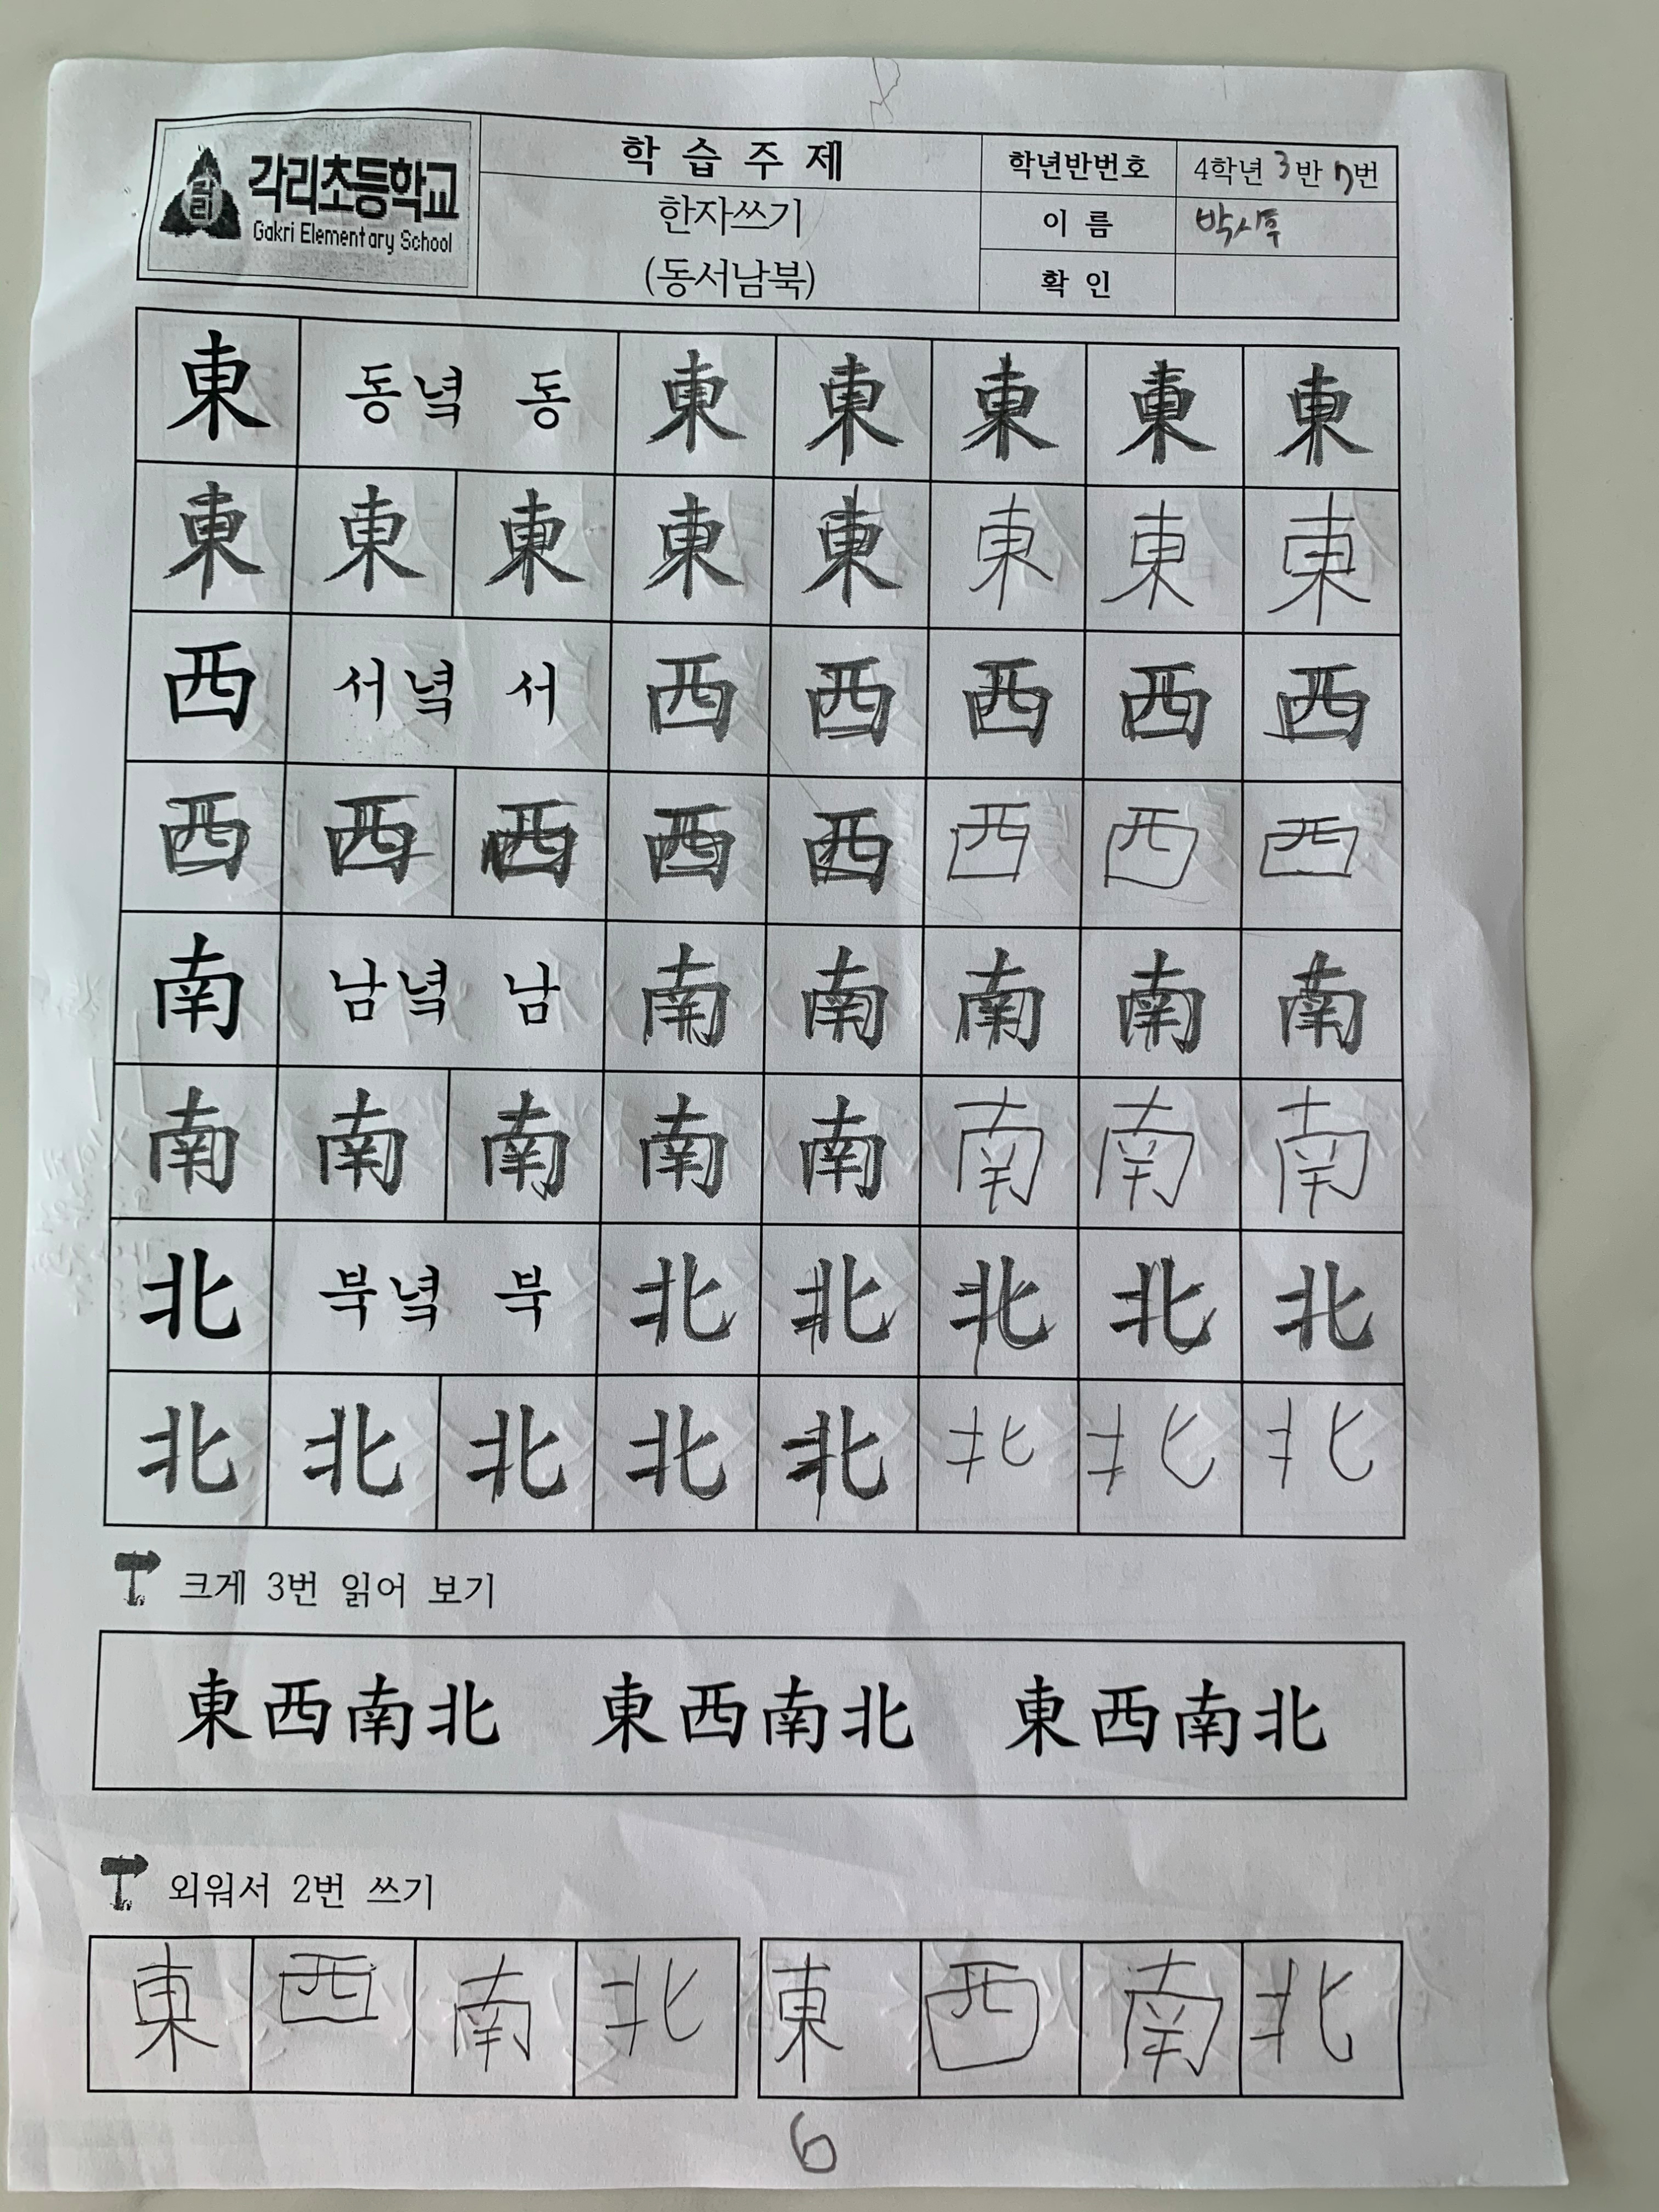 각리
각리초등학교
Gakri Elementary School
학 습 주 제
한자쓰기
(동서남북)
학년반번호 4학년 3반 7번
이 름 박시후
확 인
東 동녘 동 東 東 東 東 東
東 東 東 東 東 東 東 東
西 서녘 서 西 西 西 西 西
西 西 西 西 西 西 西 西
南 남녘 남 南 南 南 南 南
南 南 南 南 南 南 南 南
北 북녘 북 北 北 北 北 北
北 北 北 北 北 北 北 北
크게 3번 읽어 보기
東西南北 東西南北 東西南北
외워서 2번 쓰기
東 西 南 北 東 西 南 北
6